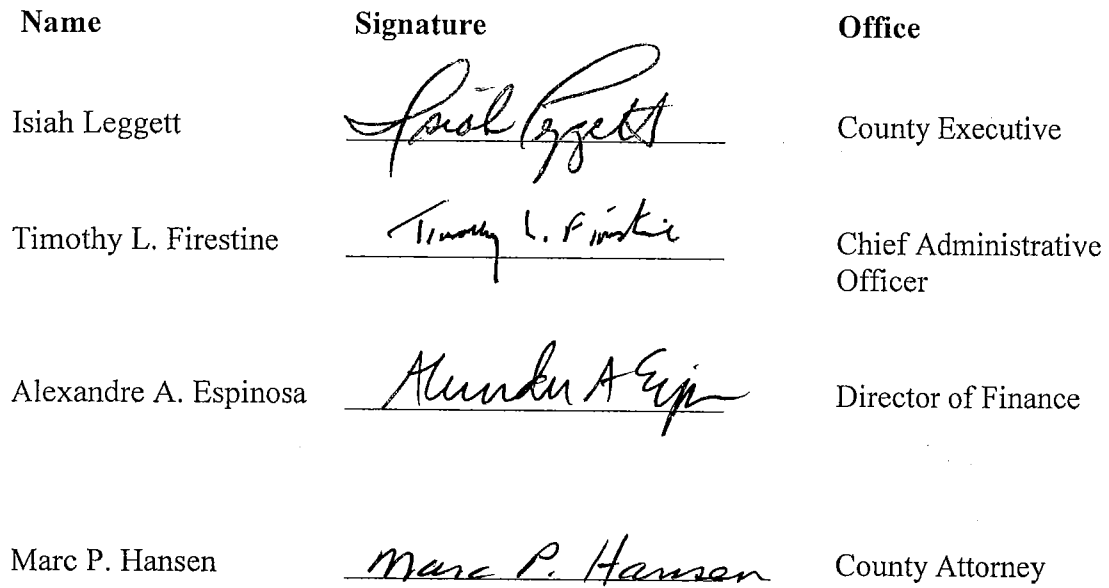 Name Signature Office
Isiah Leggett Isiah Leggett County Executive
Timothy L. Firestine Timothy L. Firestine Chief Administrative
Officer
Alexandre A. Espinosa Alexandre A Espinosa Director of Finance
Marc P. Hansen Marc P. Hansen County Attorney